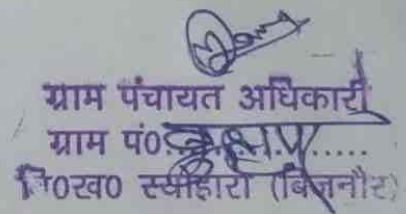 ग्राम पंचायत अधिकारी
ग्राम पं०
वि०ख० स्योहारा (बिजनौर)